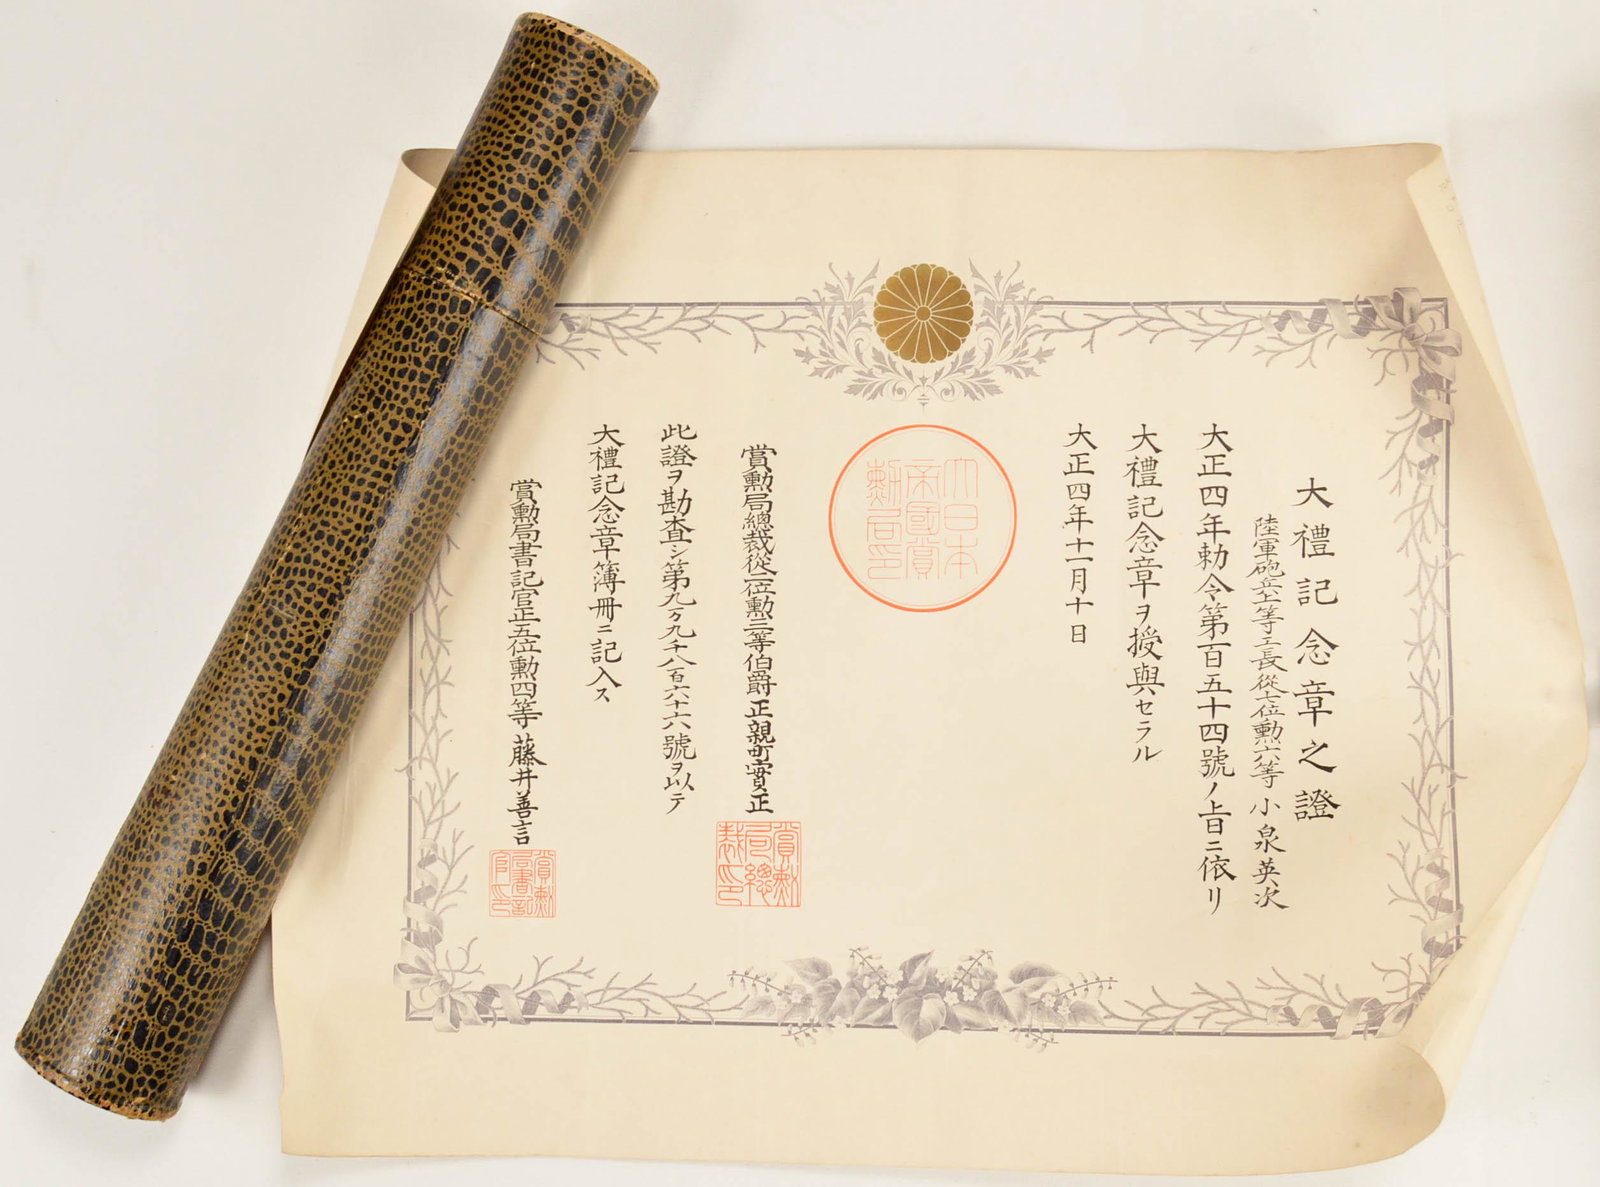 大禮記念章之證
陸軍砲兵上等工長從七位勳六等 小泉英次
大正四年勅令第百五十四號ノ旨ニ依リ
大禮記念章ヲ授與セラル
大正四年十一月十日
大日本
帝國賞
勲局印
賞勲局總裁從二位勲三等伯爵 正親町實正
賞勲
局總
裁印
此證ヲ勘査シ第九万九千八百六十六號ヲ以テ
大禮記念章簿冊ニ記入ス
賞勲局書記官正五位勲四等 藤井善言
賞勲
局書記
官印